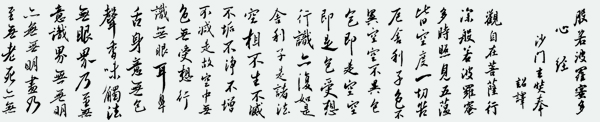 般若波羅蜜多
心經
沙門玄奘奉
詔譯
觀自在菩薩行
深般若波羅蜜
多時照見五蘊
皆空度一切苦
厄舍利子色不
異空空不異色
色即是空空
即是色受想
行識亦復如是
舍利子是諸法
空相不生不滅
不垢不淨不增
不減是故空中無
色無受想行
識無眼耳鼻
舌身意無色
聲香味觸法
無眼界乃至無
意識界無無明
亦無無明盡乃
至無老死亦無